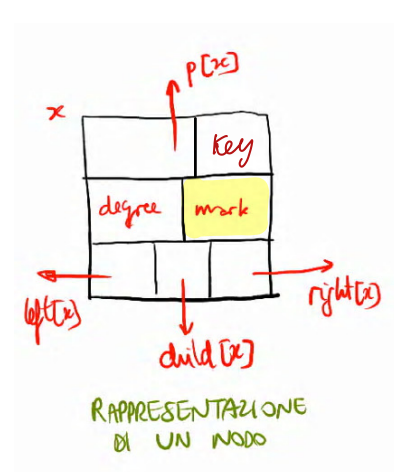 p[x]
x
Key
degree mark
left[x]
right[x]
child[x]
RAPPRESENTAZIONE
DI UN NODO